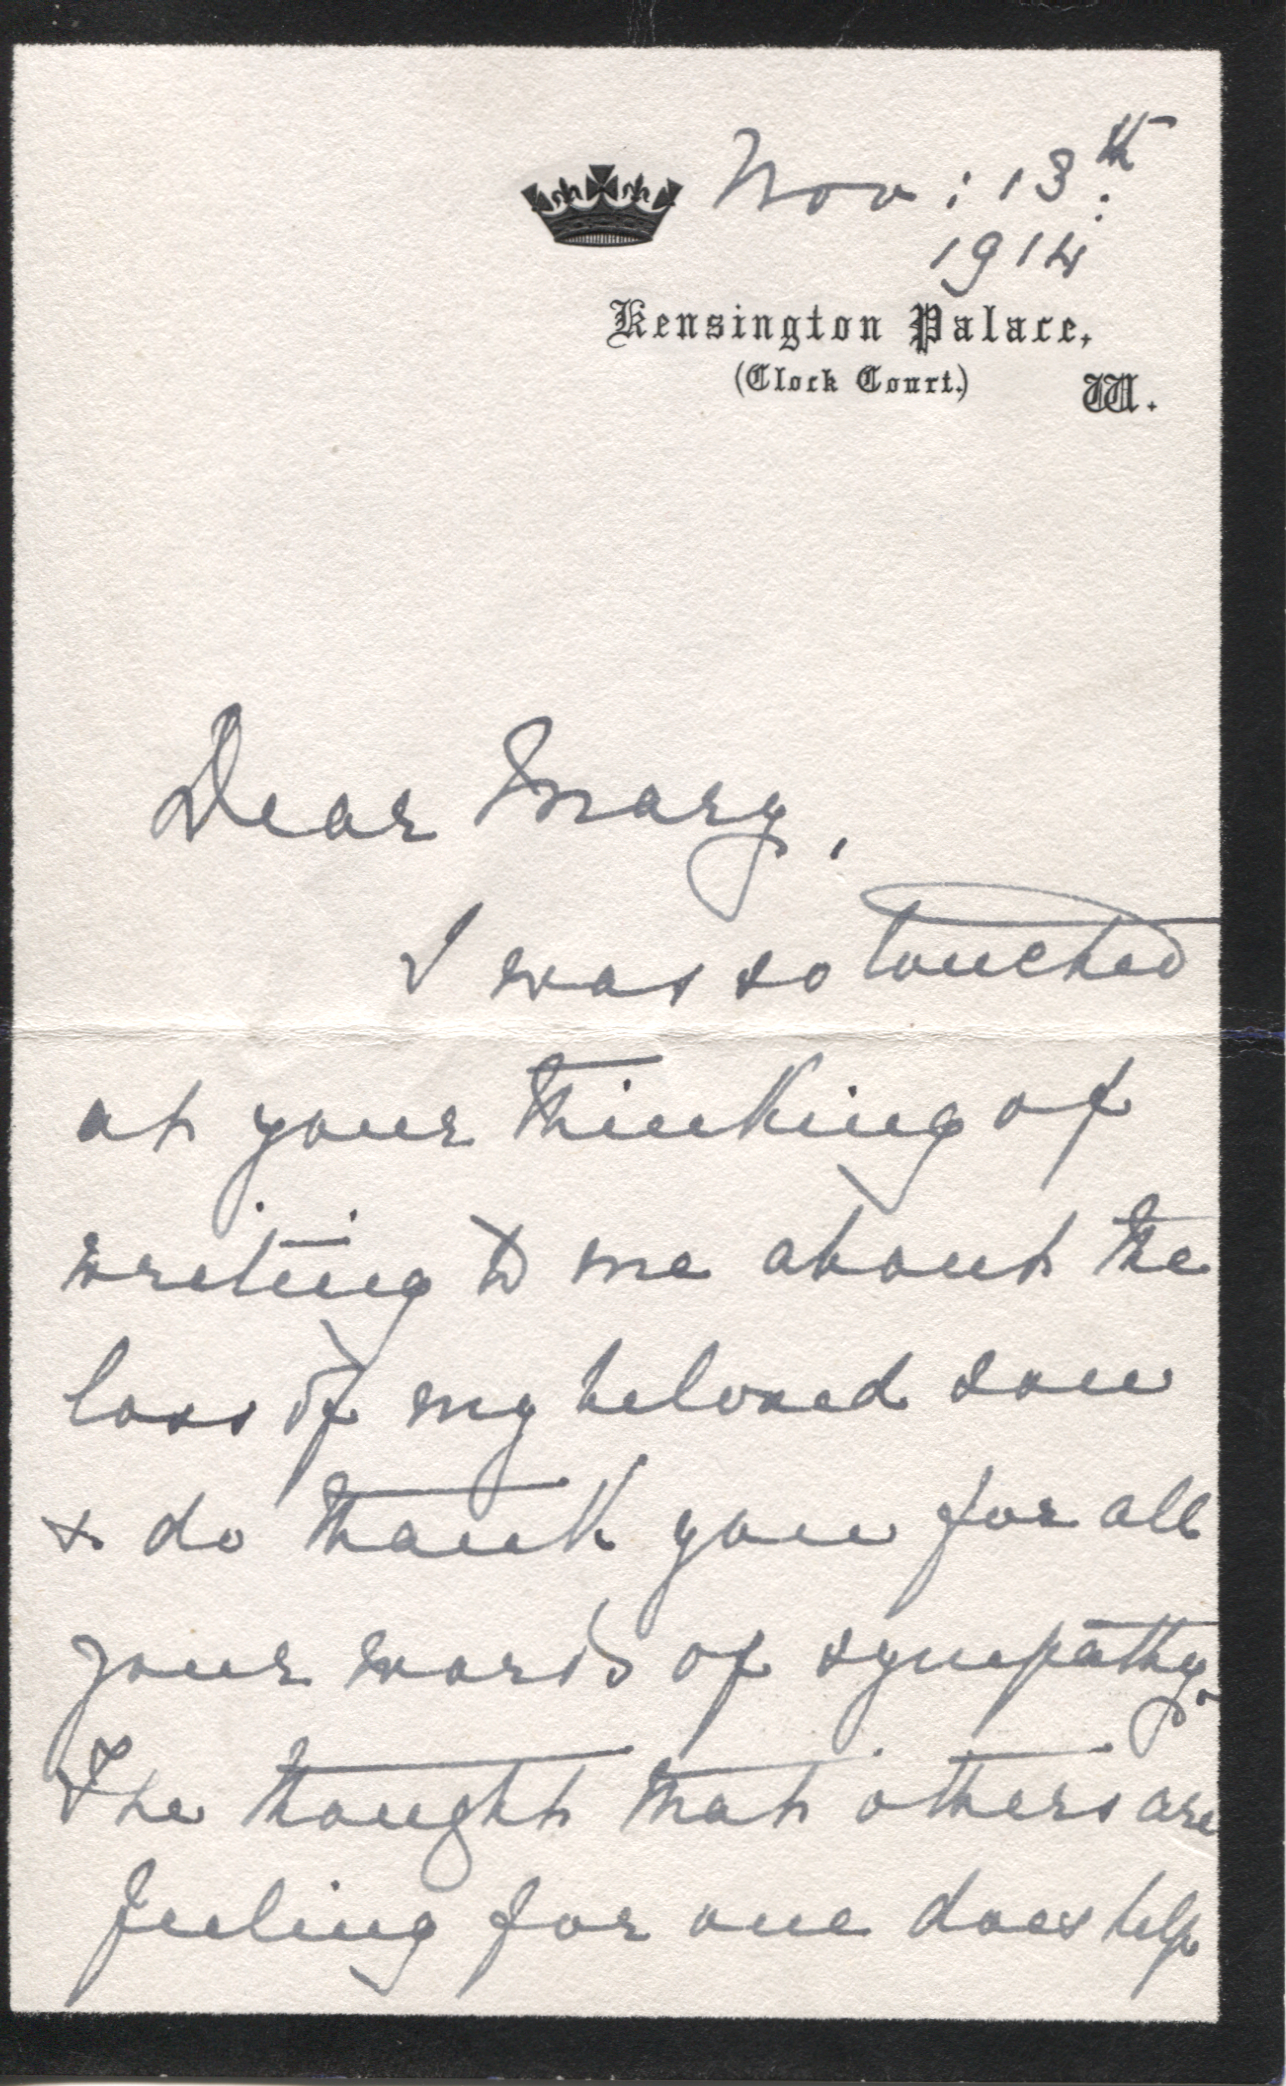 Nov: 13th.
1914
Kensington Palace,
(Clock Court.) W.
Dear Mary,
I was so touched
at your thinking of
writing to me about the
loss of my beloved son
& do thank you for all
your words of sympathy.
The thought that others are
feeling for one does help